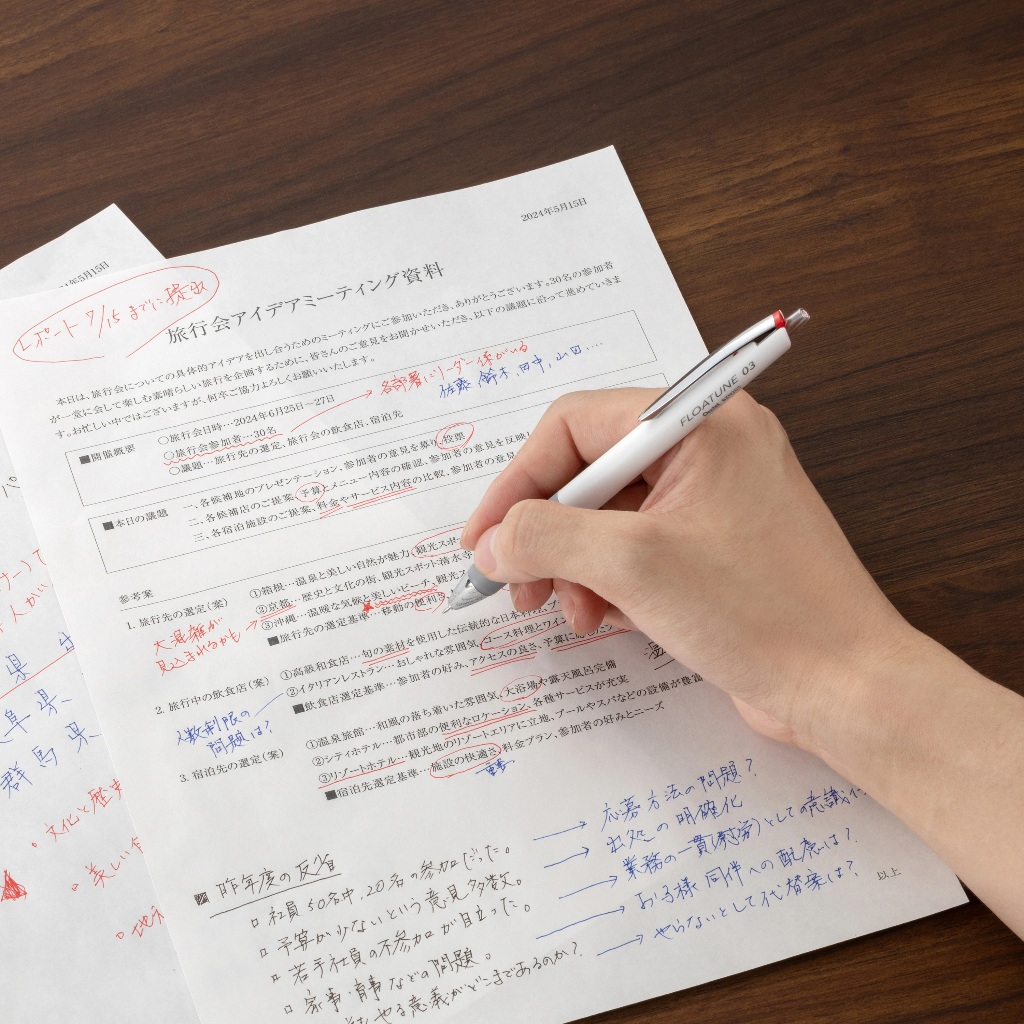 2024年5月15日
レポート 7/15 までに提出
旅行会アイデアミーティング資料
本日は、旅行会についての具体的アイデアを出し合うためのミーティングにご参加いただき、ありがとうございます。30名の参加者
が一堂に会して楽しむ素晴らしい旅行を企画するために、皆さんのご意見をお聞かせいただき、以下の議題に沿って進めていきま
す。お忙しい中ではございますが、何卒ご協力よろしくお願いいたします。
各部署にリーダー係がいる
佐藤 鈴木、田中、山田....
■開催概要
○旅行会日時…2024年6月25日〜27日
○旅行会参加者…30名
○議題…旅行先の選定、旅行会の飲食店、宿泊先
■本日の議題
一、各候補地のプレゼンテーション、参加者の意見を募り、投票
二、各候補店のご提案、予算とメニュー内容の確認、参加者の意見を反映し
三、各宿泊施設のご提案、料金やサービス内容の比較、参加者の意見
参考案
1. 旅行先の選定(案)
①箱根…温泉と美しい自然が魅力、観光スポ
②京都…歴史と文化の街、観光スポット清水寺
③沖縄…温暖な気候と美しいビーチ、観光ス
■旅行先の選定基準…移動の便利
大混雑が
見込まれるかも
2. 旅行中の飲食店(案)
①高級和食店…旬の素材を使用した伝統的な日本料理
②イタリアンレストラン…おしゃれな雰囲気、コース料理とワイン
■飲食店選定基準…参加者の好み、アクセスの良さ、予算に応じた
人数制限の
問題は?
3. 宿泊先の選定(案)
①温泉旅館…和風の落ち着いた雰囲気、大浴場や露天風呂完備
②シティホテル…都市部の便利なロケーション、各種サービスが充実
③リゾートホテル…観光地のリゾートエリアに立地、プールやスパなどの設備が豊富
■宿泊先選定基準…施設の快適さ、料金プラン、参加者の好みとニーズ
重要
昨年度の反省
社員50名中、20名の参加だった。
→ 応募方法の問題?
予算が少ないという意見多数。
→ 出処の明確化
若手社員の不参加が目立った。
→ 業務の一貫(慰労)としての意識
家事・育事などの問題。
→ お子様同伴への配慮は?
やる意義がどこまであるのか?
→ やらないとして代替案は?
以上
FLOATUNE 03
5月15日
県
阜県、
群馬県
文化と歴史
美しい
地